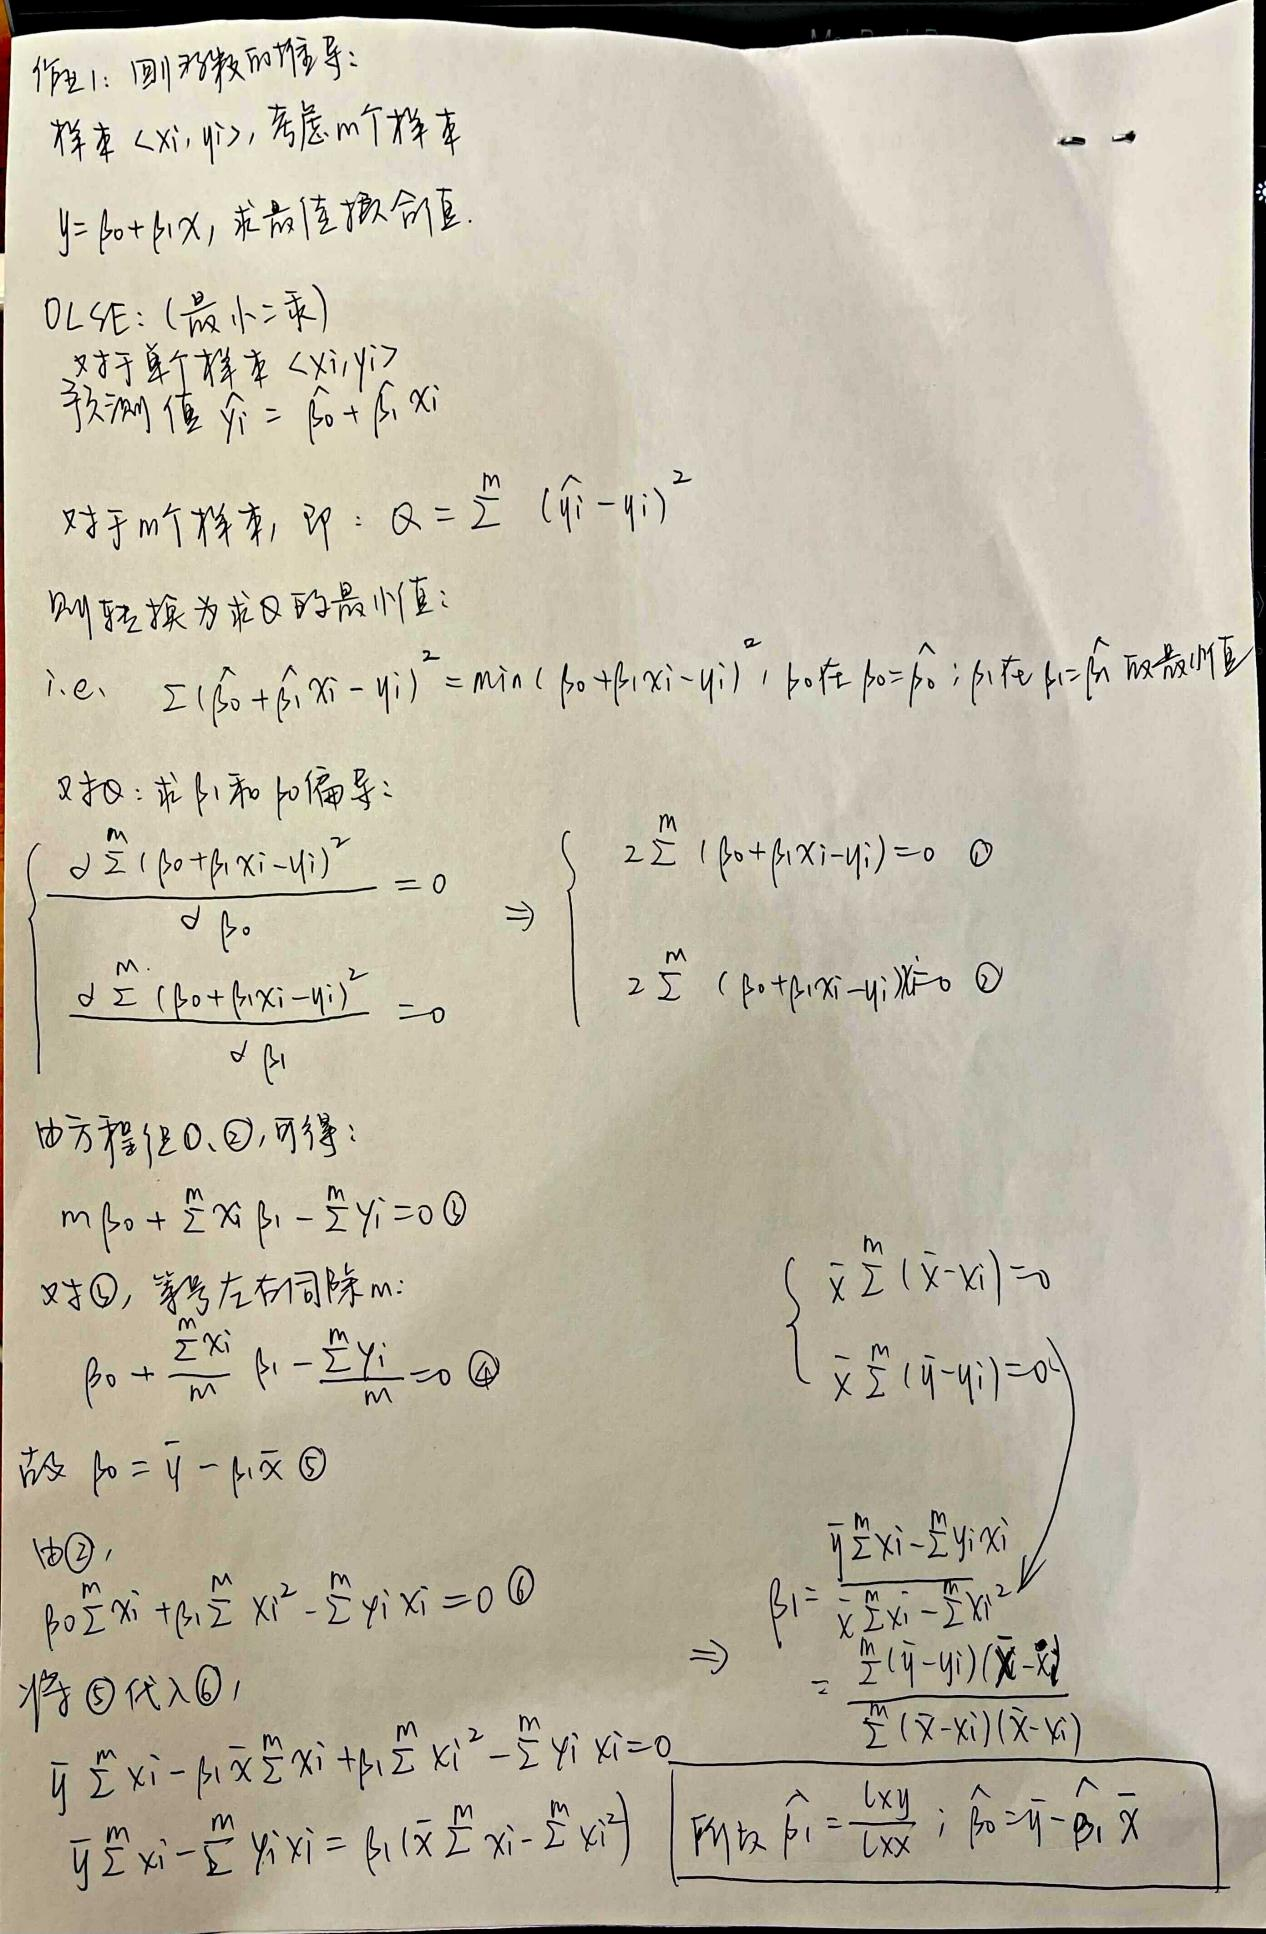 作业1: 回归系数的推导:
样本 <xi, yi>, 考虑m个样本
y = β0 + β1x, 求最佳拟合值.
OLSE: (最小二乘)
对于单个样本 <xi, yi>
预测值 ŷi = β̂0 + β̂1 xi
对于m个样本, 即: Q = Σ^m (ŷi - yi)^2
则转换为求Q的最小值:
i.e. Σ(β̂0 + β̂1 xi - yi)^2 = min(β0 + β1xi - yi)^2, β0在 β0 = β̂0; β1在 β1 = β̂1 取最小值
对Q: 求β1和β0偏导:
∂Σ^m(β0 + β1xi - yi)^2 / ∂β0 = 0 ⇒ 2Σ^m (β0 + β1xi - yi) = 0 ①
∂Σ^m(β0 + β1xi - yi)^2 / ∂β1 = 0 2Σ^m (β0 + β1xi - yi)xi = 0 ②
由方程组①、②, 可得:
mβ0 + Σ^m xi β1 - Σ^m yi = 0 ③
对③, 等号左右同除m:
β0 + Σ^m xi / m β1 - Σ^m yi / m = 0 ④
故 β0 = ȳ - β1x̄ ⑤
由②,
β0Σ^m xi + β1Σ^m xi^2 - Σ^m yi xi = 0 ⑥
将⑤代入⑥,
ȳ Σ^m xi - β1 x̄ Σ^m xi + β1 Σ^m xi^2 - Σ^m yi xi = 0
ȳ Σ^m xi - Σ^m yi xi = β1(x̄ Σ^m xi - Σ^m xi^2)
x̄ Σ^m (x̄ - xi) = 0
x̄ Σ^m (ȳ - yi) = 0
⇒ β1 = (ȳ Σ^m xi - Σ^m yi xi) / (x̄ Σ^m xi - Σ^m xi^2)
= Σ^m (ȳ - yi)(x̄ - xi) / Σ^m (x̄ - xi)(x̄ - xi)
所以 β̂1 = lxy / lxx ; β̂0 = ȳ - β̂1 x̄